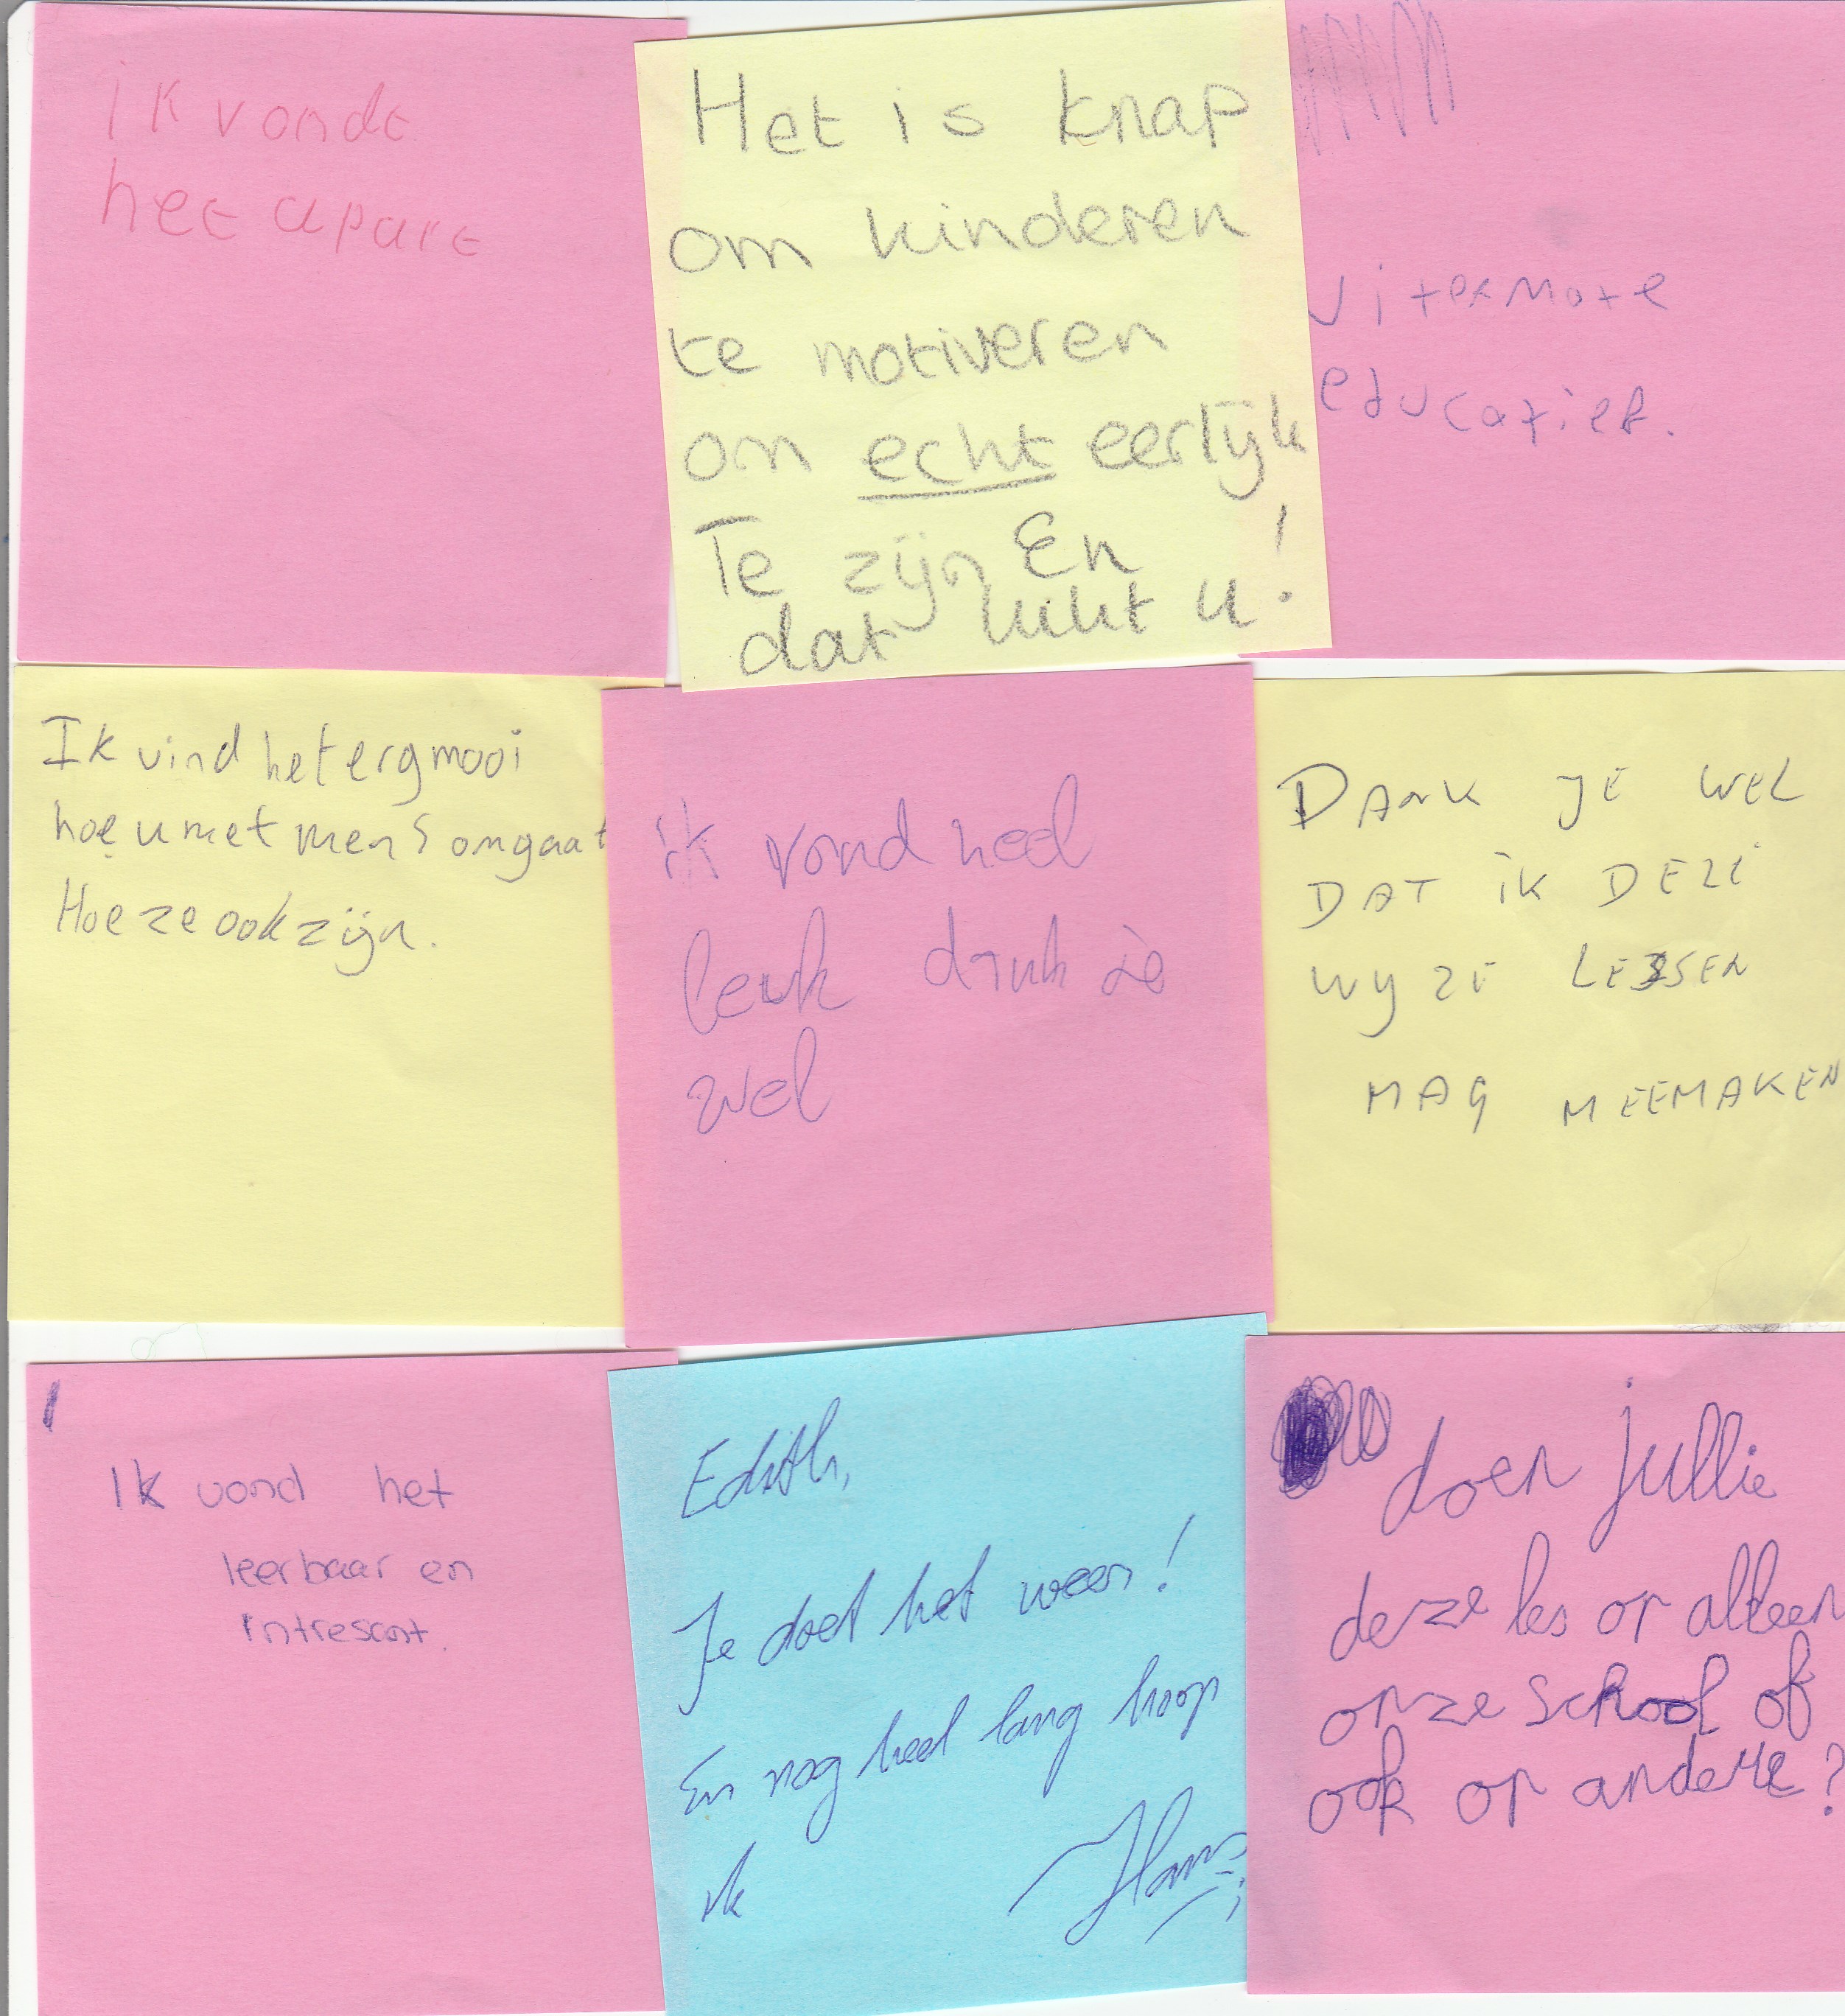 ik vondt
het apart
Het is knap
om kinderen
te motiveren
om echt eerlijk
Te zijn En
dat lukt u!
uitermate
educatief.
Ik vind het erg mooi
hoe u met mens omgaat
Hoe ze ook zijn.
ik vond heel
leuk dank je
wel
DANK JE WEL
DAT IK DEZE
WYZE LESSEN
MAG MEEMAKEN
Ik vond het
leerbaar en
intresant.
Edith,
Je doet het weer!
En nog heel lang hoop
ik Hans
doen jullie
deze les op alleen
onze school of
ook op andere?